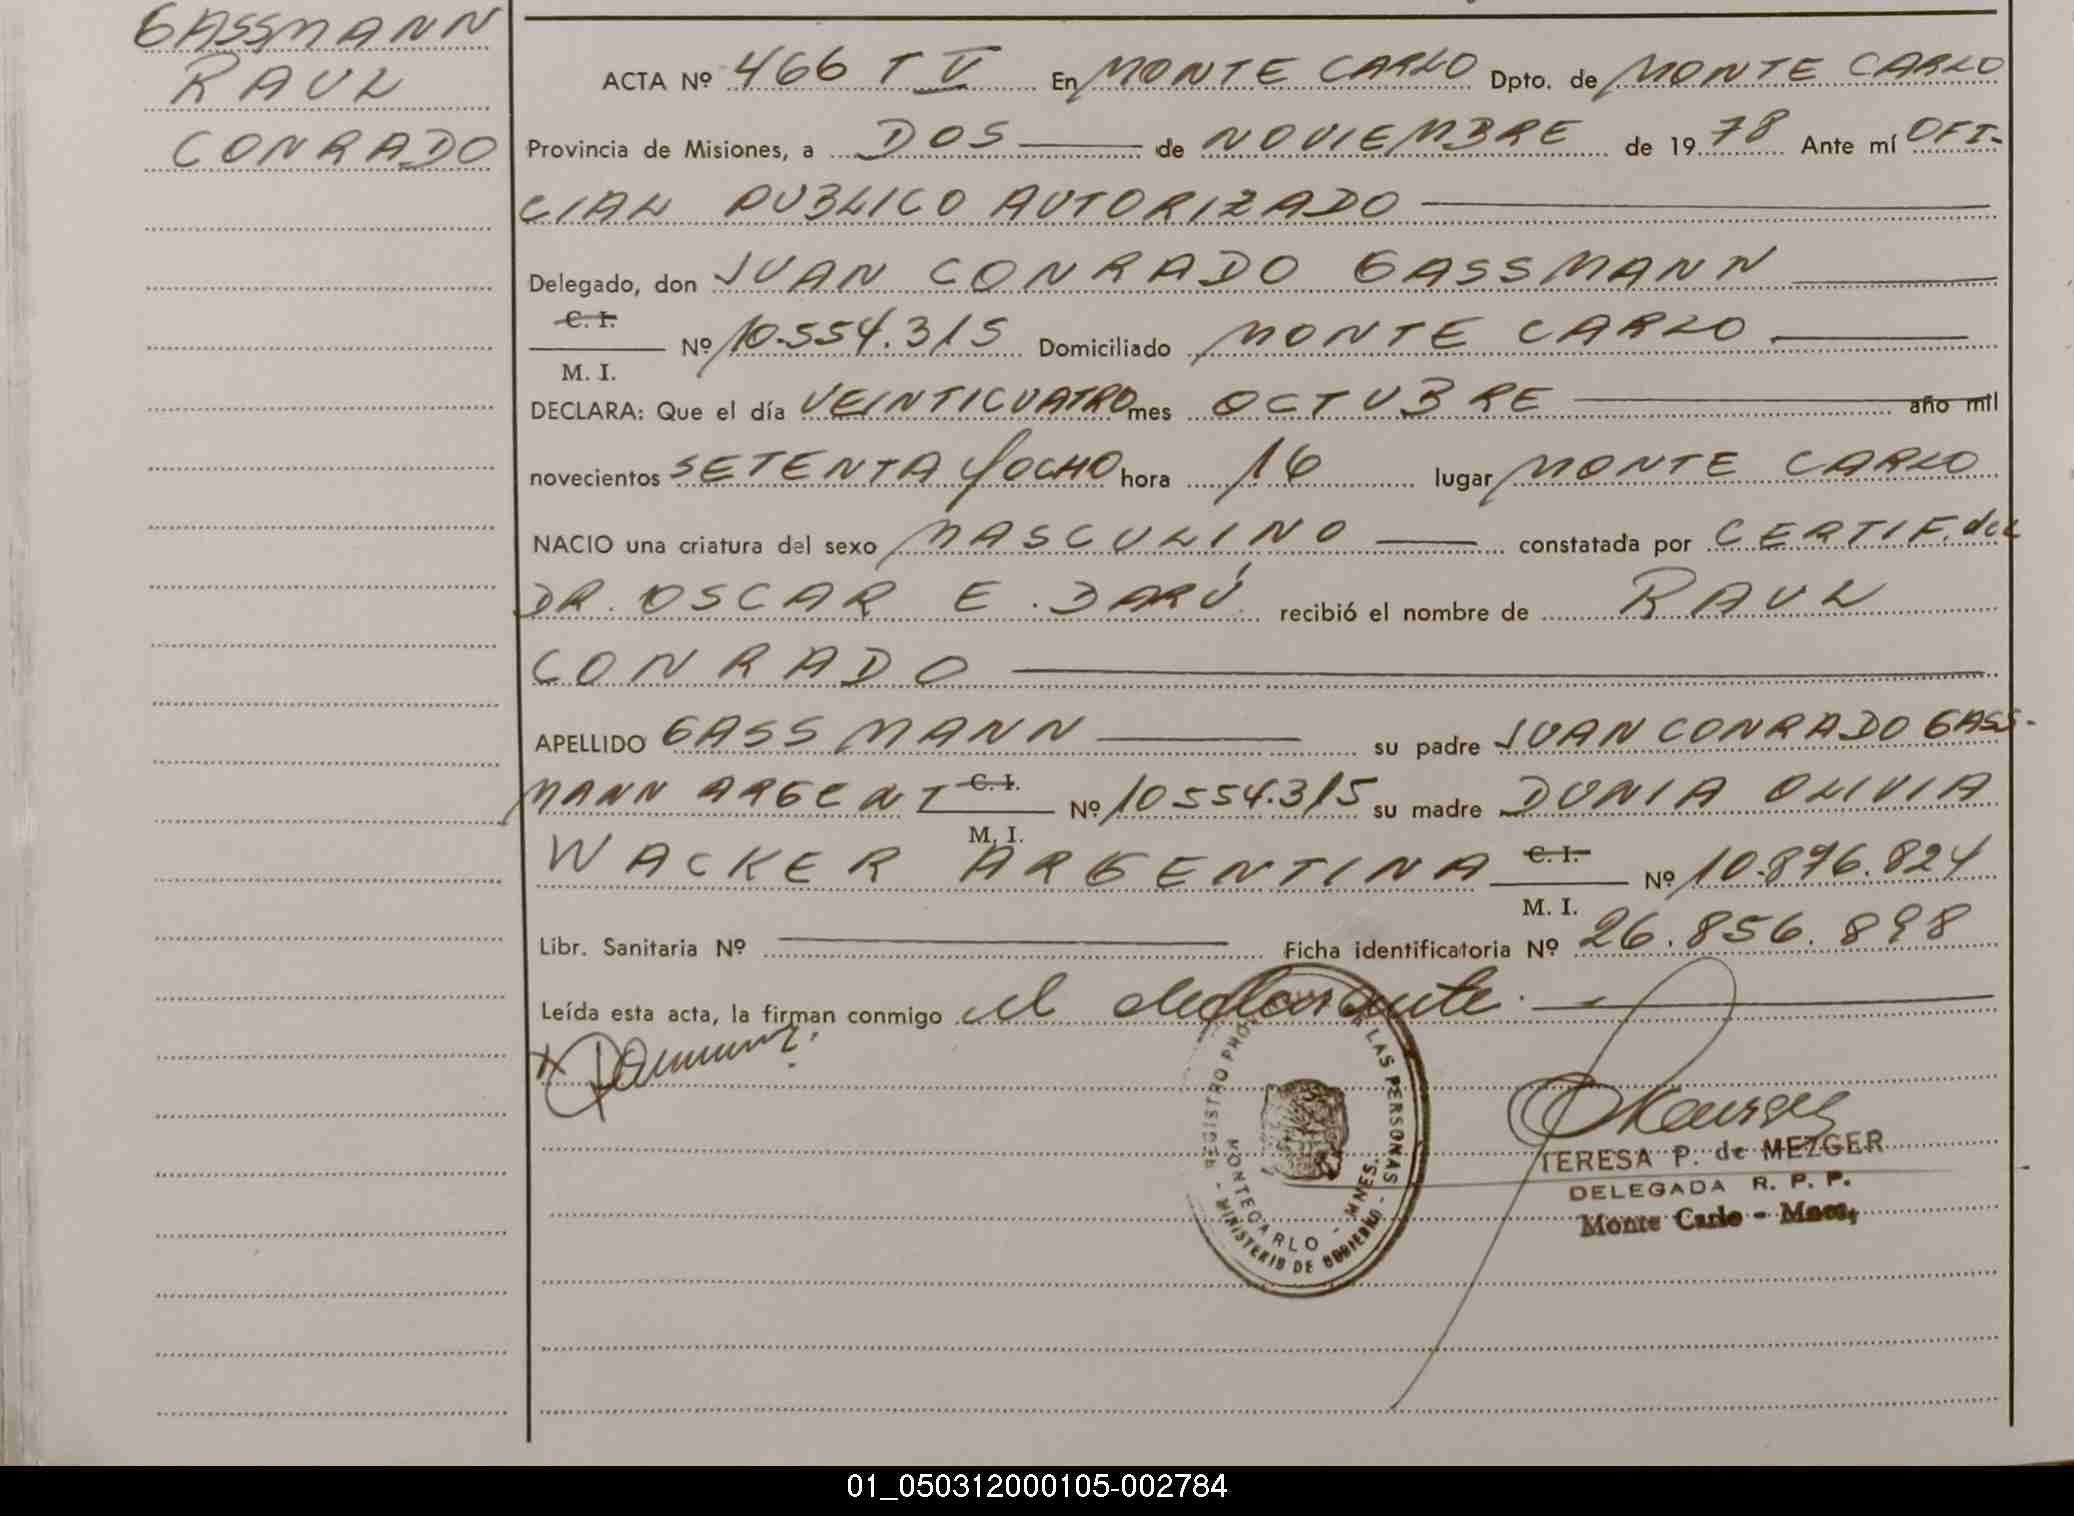 GASSMANN
RAUL
CONRADO
ACTA Nº 466 T V En MONTE CARLO Dpto. de MONTE CARLO
Provincia de Misiones, a DOS de NOVIEMBRE de 1978 Ante mí OFI-
CIAL PUBLICO AUTORIZADO
Delegado, don JUAN CONRADO GASSMANN
C. I.
Nº 10.554.315 Domiciliado MONTE CARLO
M. I.
DECLARA: Que el día VEINTICUATRO mes OCTUBRE año mil
novecientos SETENTA y OCHO hora 16 lugar MONTE CARLO
NACIO una criatura del sexo MASCULINO constatada por CERTIF. del
DR. OSCAR E. DARÚ recibió el nombre de RAUL
CONRADO
APELLIDO GASSMANN su padre JUAN CONRADO GASS-
MANN ARGENT C. I. Nº 10554.315 su madre DUNIA OLIVIA
M. I.
WACKER ARGENTINA C. I. Nº 10.876.824
M. I.
Libr. Sanitaria Nº Ficha identificatoria Nº 26.856.898
Leída esta acta, la firman conmigo el declarante.
REGISTRO LAS PERSONAS
MONTECARLO - MNES.
- MINISTERIO DE GOBIERNO -
TERESA P. de MEZGER
DELEGADA R. P. P.
Monte Carlo - Mnes,
01_050312000105-002784